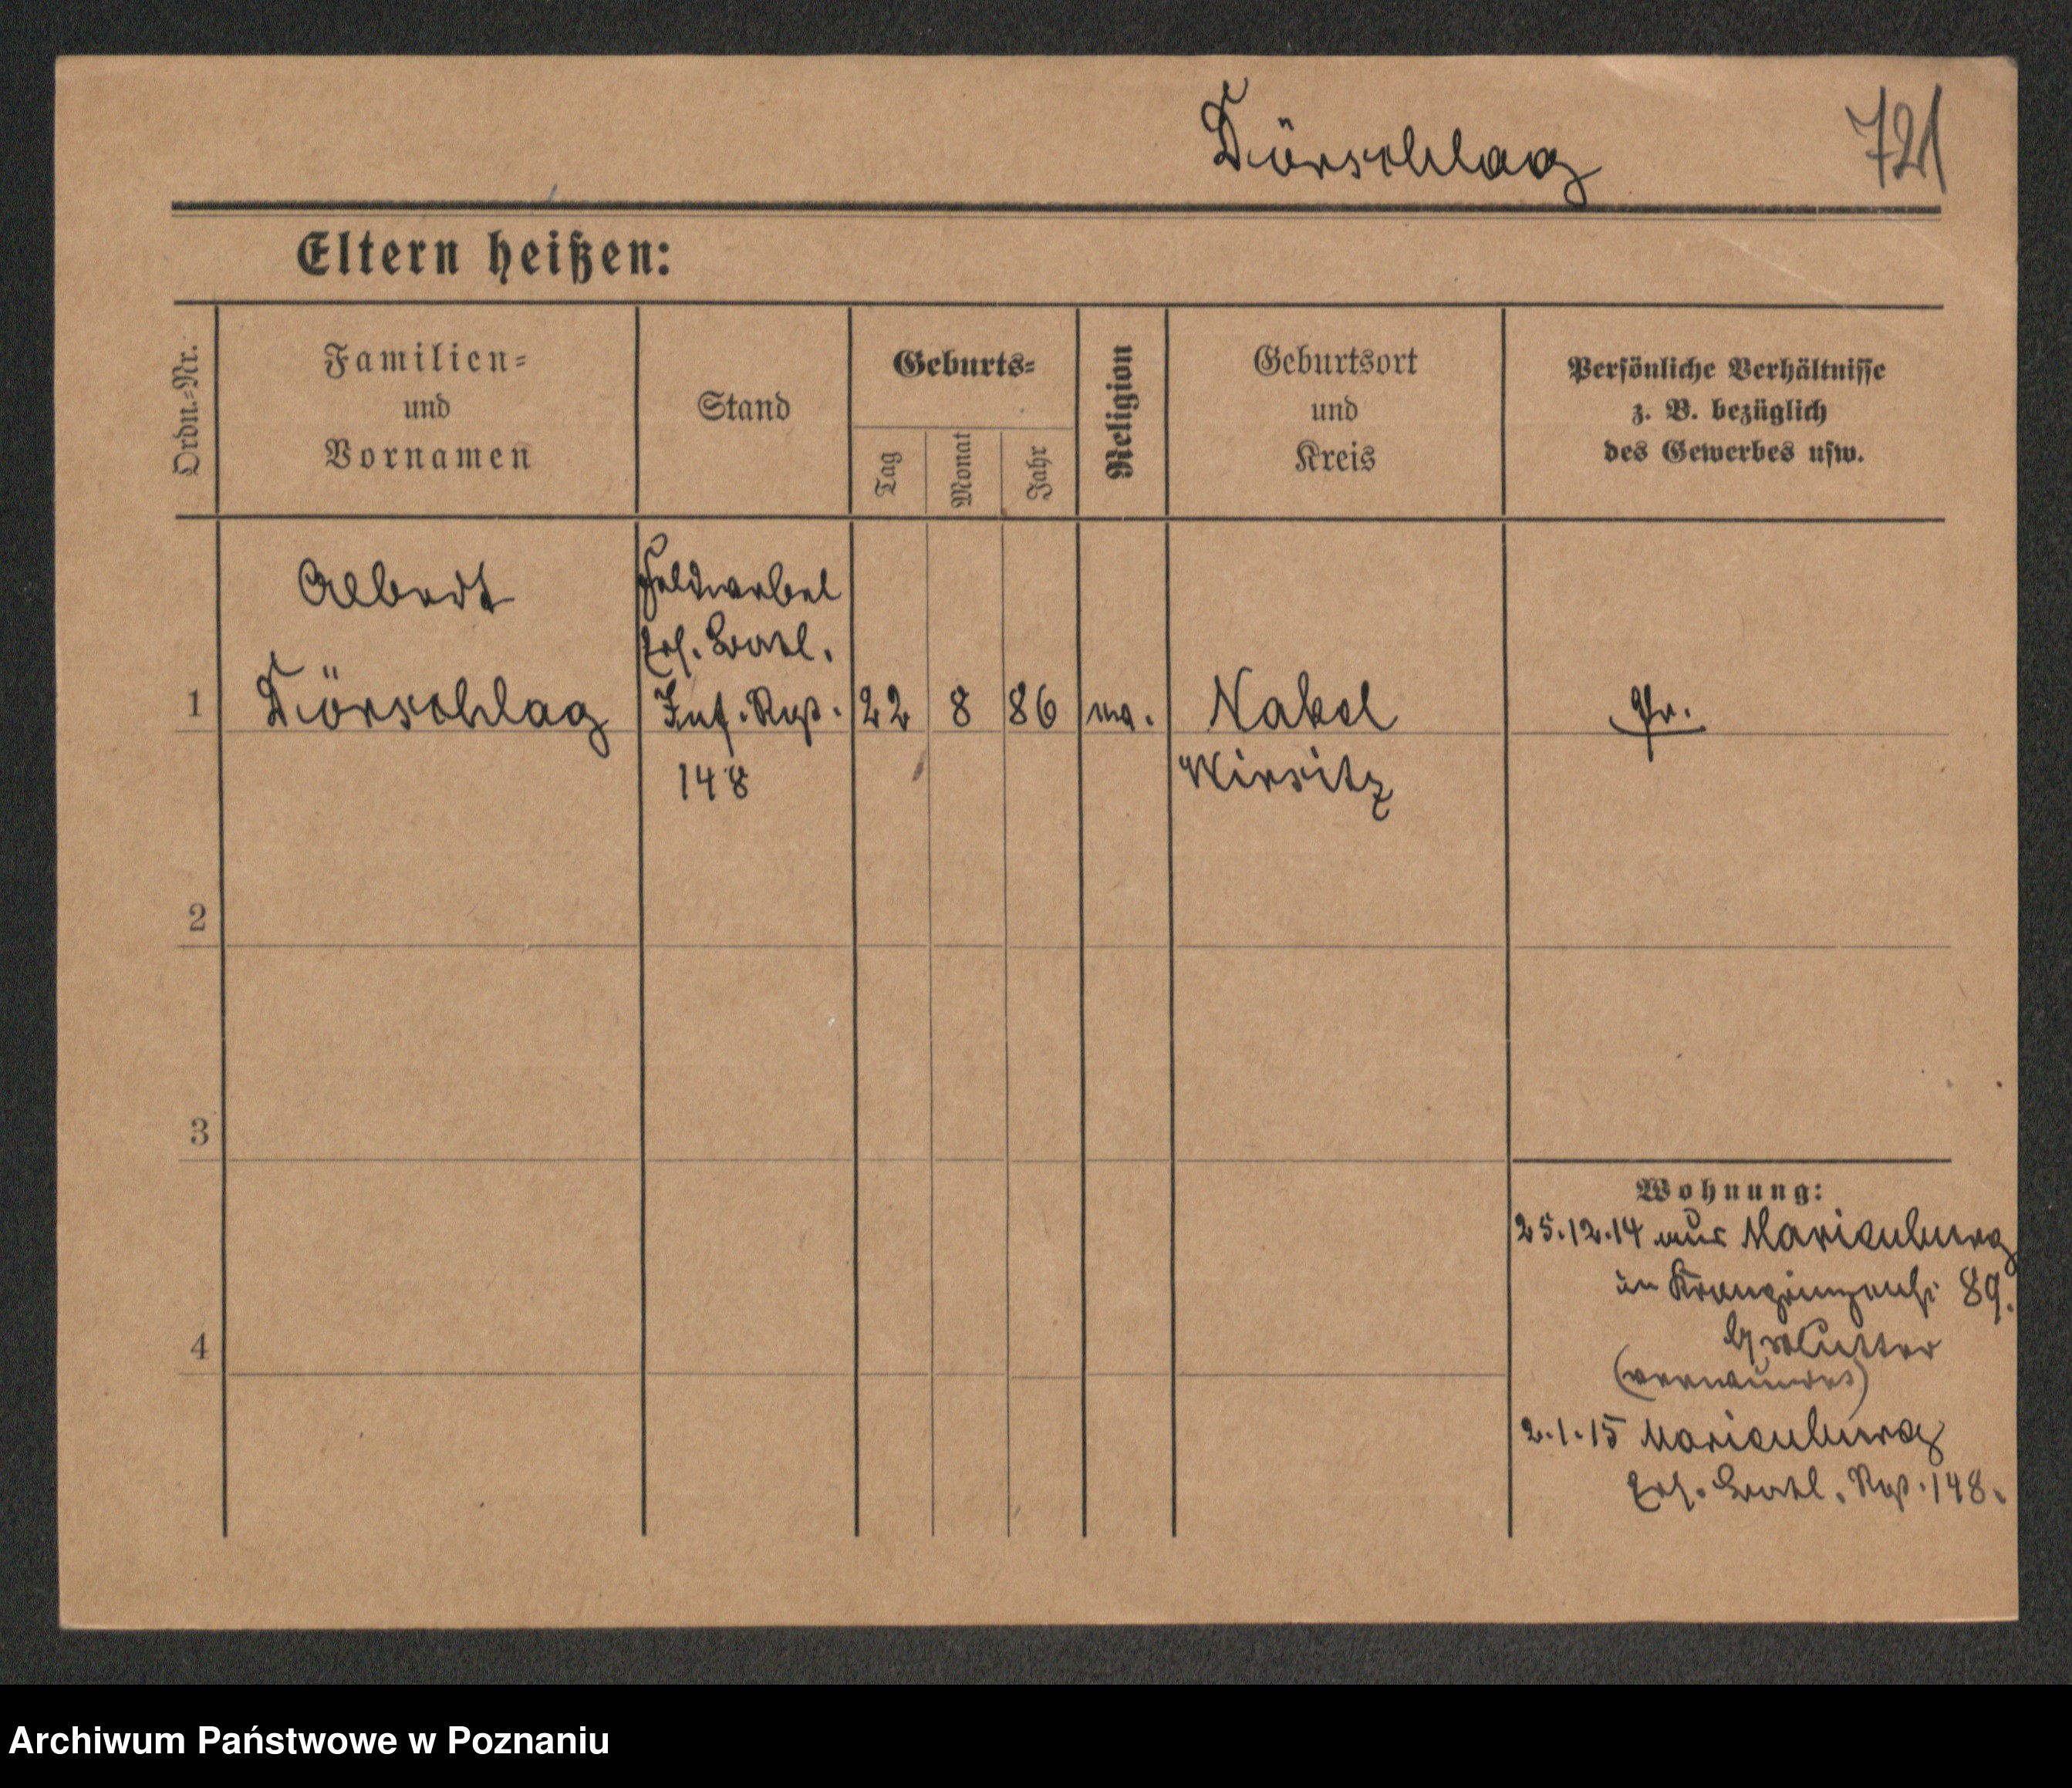 Dörschlag
721
Eltern heißen:
Ordn.-Nr.
Familien-
und
Vornamen
Stand
Geburts-
Tag
Monat
Jahr
Religion
Geburtsort
und
Kreis
Persönliche Verhältnisse
z. B. bezüglich
des Gewerbes usw.
1
Albert
Dörschlag
Feldwebel
Ers. Batl.
Inf. Rgt.
148
22
8
86
Nakel
Wirsitz
Pr.
2
3
4
Wohnung:
25.12.14 aus Marienburg
in 89.
(verwundet)
2.1.15 Marienburg
Ers. Batl. Rgt. 148.
Archiwum Państwowe w Poznaniu